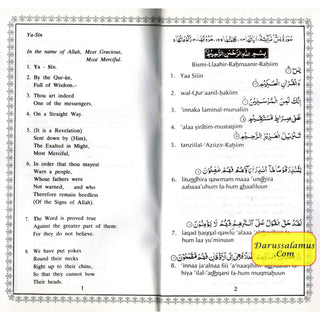 Ya-Sin
In the name of Allah, Most Gracious,
Most Merciful.
1. Ya - Sin.
2. By the Qur-án,
Full of Wisdom,-
3. Thou art indeed
One of the messengers,
4. On a Straight Way.
5. (It is a Revelation)
Sent down by (Him),
The Exalted in Might,
Most Merciful,
6. In order that thou mayest
Warn a people,
Whose fathers were
Not warned, and who
Therefore remain heedless
(Of the Signs of Allah).
7. The Word is proved true
Against the greater part of them:
For they do not believe.
8. We have put yokes
Round their necks
Right up to their chins,
So that they cannot bow
Their heads.
1
بِسْمِ اللهِ الرَّحْمٰنِ الرَّحِيْمِ
Bismi-Llaahir-Raḥmaanir-Raḥiim
يٰسٓ
1. Yaa Siiin
وَالْقُرْاٰنِ الْحَكِيْمِ
2. wal-Qur'aanil-ḥakiim
اِنَّكَ لَمِنَ الْمُرْسَلِيْنَ
3. 'innaka laminal-mursaliin
عَلٰى صِرَاطٍ مُّسْتَقِيْمٍ
4. 'alaa ṣiraatim-mustaqiim
تَنْزِيْلَ الْعَزِيْزِ الرَّحِيْمِ
5. tanziilal-'Aziizir-Raḥiim
لِتُنْذِرَ قَوْمًا مَّآ اُنْذِرَ اٰبَآؤُهُمْ فَهُمْ غٰفِلُوْنَ
6. litundhira qawmam maaa 'undhira
aabaaa'uhum fa-hum ghaafiluun
لَقَدْ حَقَّ الْقَوْلُ عَلٰٓى اَكْثَرِهِمْ فَهُمْ لَا يُؤْمِنُوْنَ
7. laqad ḥaqqal-qawlu
hum laa yu'minuun
8. 'innaa ja'alnaa fiii 'a'naaqihim
hiya 'ilal-'adhqaani fa-hum muqmaḥuun
2
Darussalamus
.Com